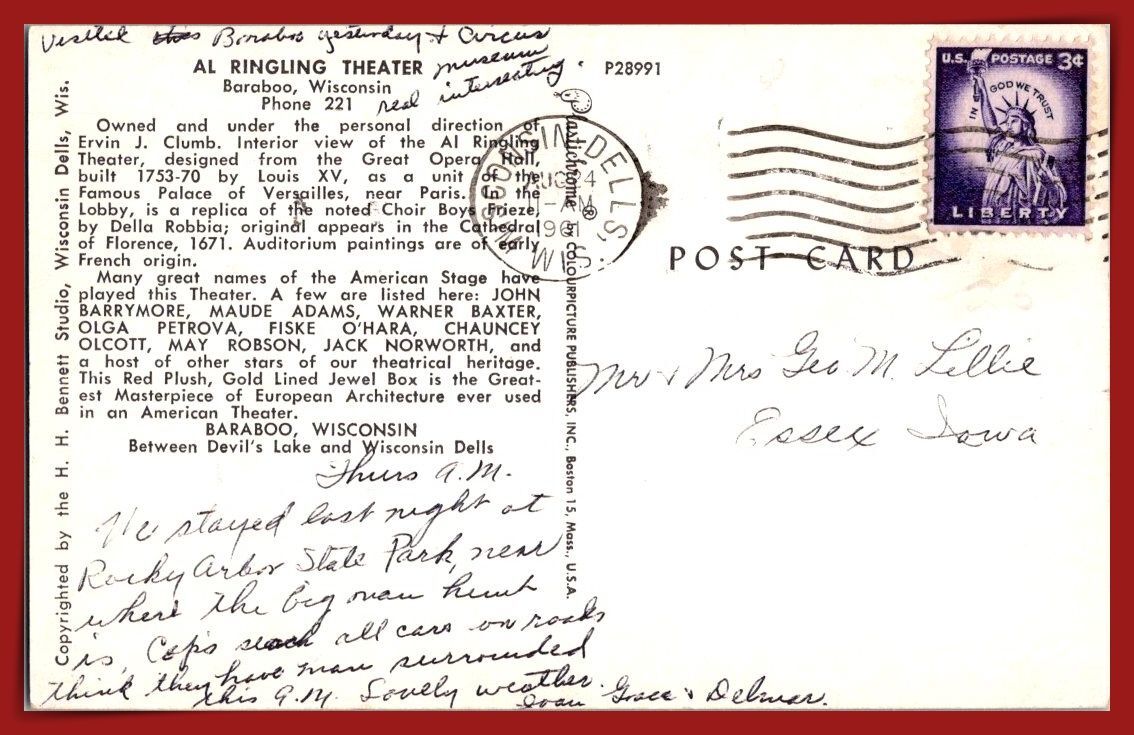 Visited this Baraboo yesterday & Circus
museum
real interseating.
AL RINGLING THEATER
Baraboo, Wisconsin
Phone 221
P28991
Owned and under the personal direction of
Ervin J. Clumb. Interior view of the Al Ringling
Theater, designed from the Great Opera Hall,
built 1753-70 by Louis XV, as a unit of the
Famous Palace of Versailles, near Paris. In the
Lobby, is a replica of the noted Choir Boys Frieze,
by Della Robbia; original appears in the Cathedral
of Florence, 1671. Auditorium paintings are of early
French origin.
Many great names of the American Stage have
played this Theater. A few are listed here: JOHN
BARRYMORE, MAUDE ADAMS, WARNER BAXTER,
OLGA PETROVA, FISKE O'HARA, CHAUNCEY
OLCOTT, MAY ROBSON, JACK NORWORTH, and
a host of other stars of our theatrical heritage.
This Red Plush, Gold Lined Jewel Box is the Great-
est Masterpiece of European Architecture ever used
in an American Theater.
BARABOO, WISCONSIN
Between Devil's Lake and Wisconsin Dells
Thurs A.M.
We stayed last night at
Rocky Arbor State Park, near
where the big man hunt
is, Cops seach all cars on roads
think they have man surrounded
this A.M. Lovely weather.
Grace & Delmar.
Copyrighted by the H. H. Bennett Studio, Wisconsin Dells, Wis.
Plastichrome ® by COLOURPICTURE PUBLISHERS, INC., Boston 15, Mass., U.S.A.
WISCONSIN DELLS, WIS.
AUG 24
-AM
1961
U.S. POSTAGE 3¢
IN GOD WE TRUST
LIBERTY
POST CARD
Mr & Mrs Geo M. Lillie
Essex Iowa